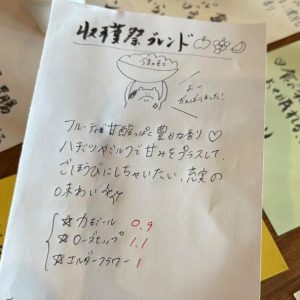 収穫祭ブレンド
今年の恵み
よー
がんばりました!
フルーティで甘酸っぱい豊かな香り♡
ハチミツやミルクで甘みをプラスして
ごほうびにしちゃいたい、充実の
味わい
☆カモミール 0.9
☆ローズヒップ 1.1
☆エルダーフラワー 1